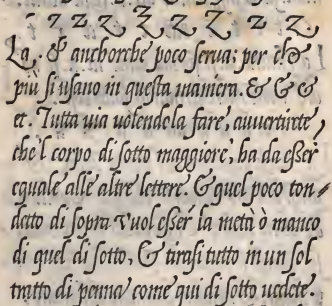 · 7 z z Z z Z z Z,
La . & anchorche poco serua; per che
più si usano in questa maniera. & & &
et. Tutta uia uolendola fare, auuertirete,
che'l corpo di sotto maggiore, ha da esser
equale alle altre lettere. & quel poco ton⸗
detto di sopra vuol esser la metà ò manco
di quel di sotto, & tirasi tutto in un sol
tratto di penna come qui di sotto uedete.